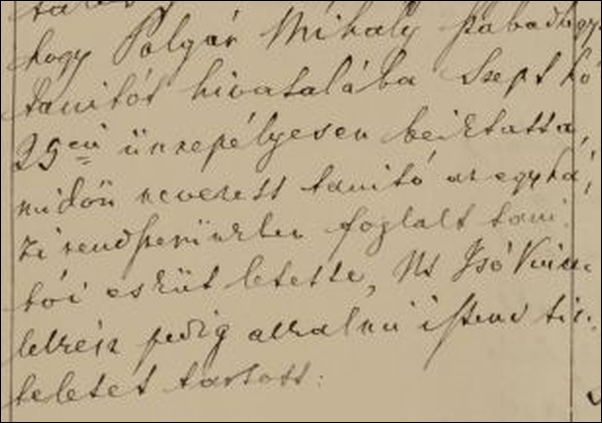 hogy Polgár Mihály szabadhegyi
tanitót hivatalába Szept hó
29én ünnepélyesen beiktatta,
midőn nevezett tanitó az egyhá„
zi rendszerünkben foglalt tani„
tói esküt letette, Nt Jsó Vincze
lelkész pedig alkalmi isteni tisz„
teletet tartott: